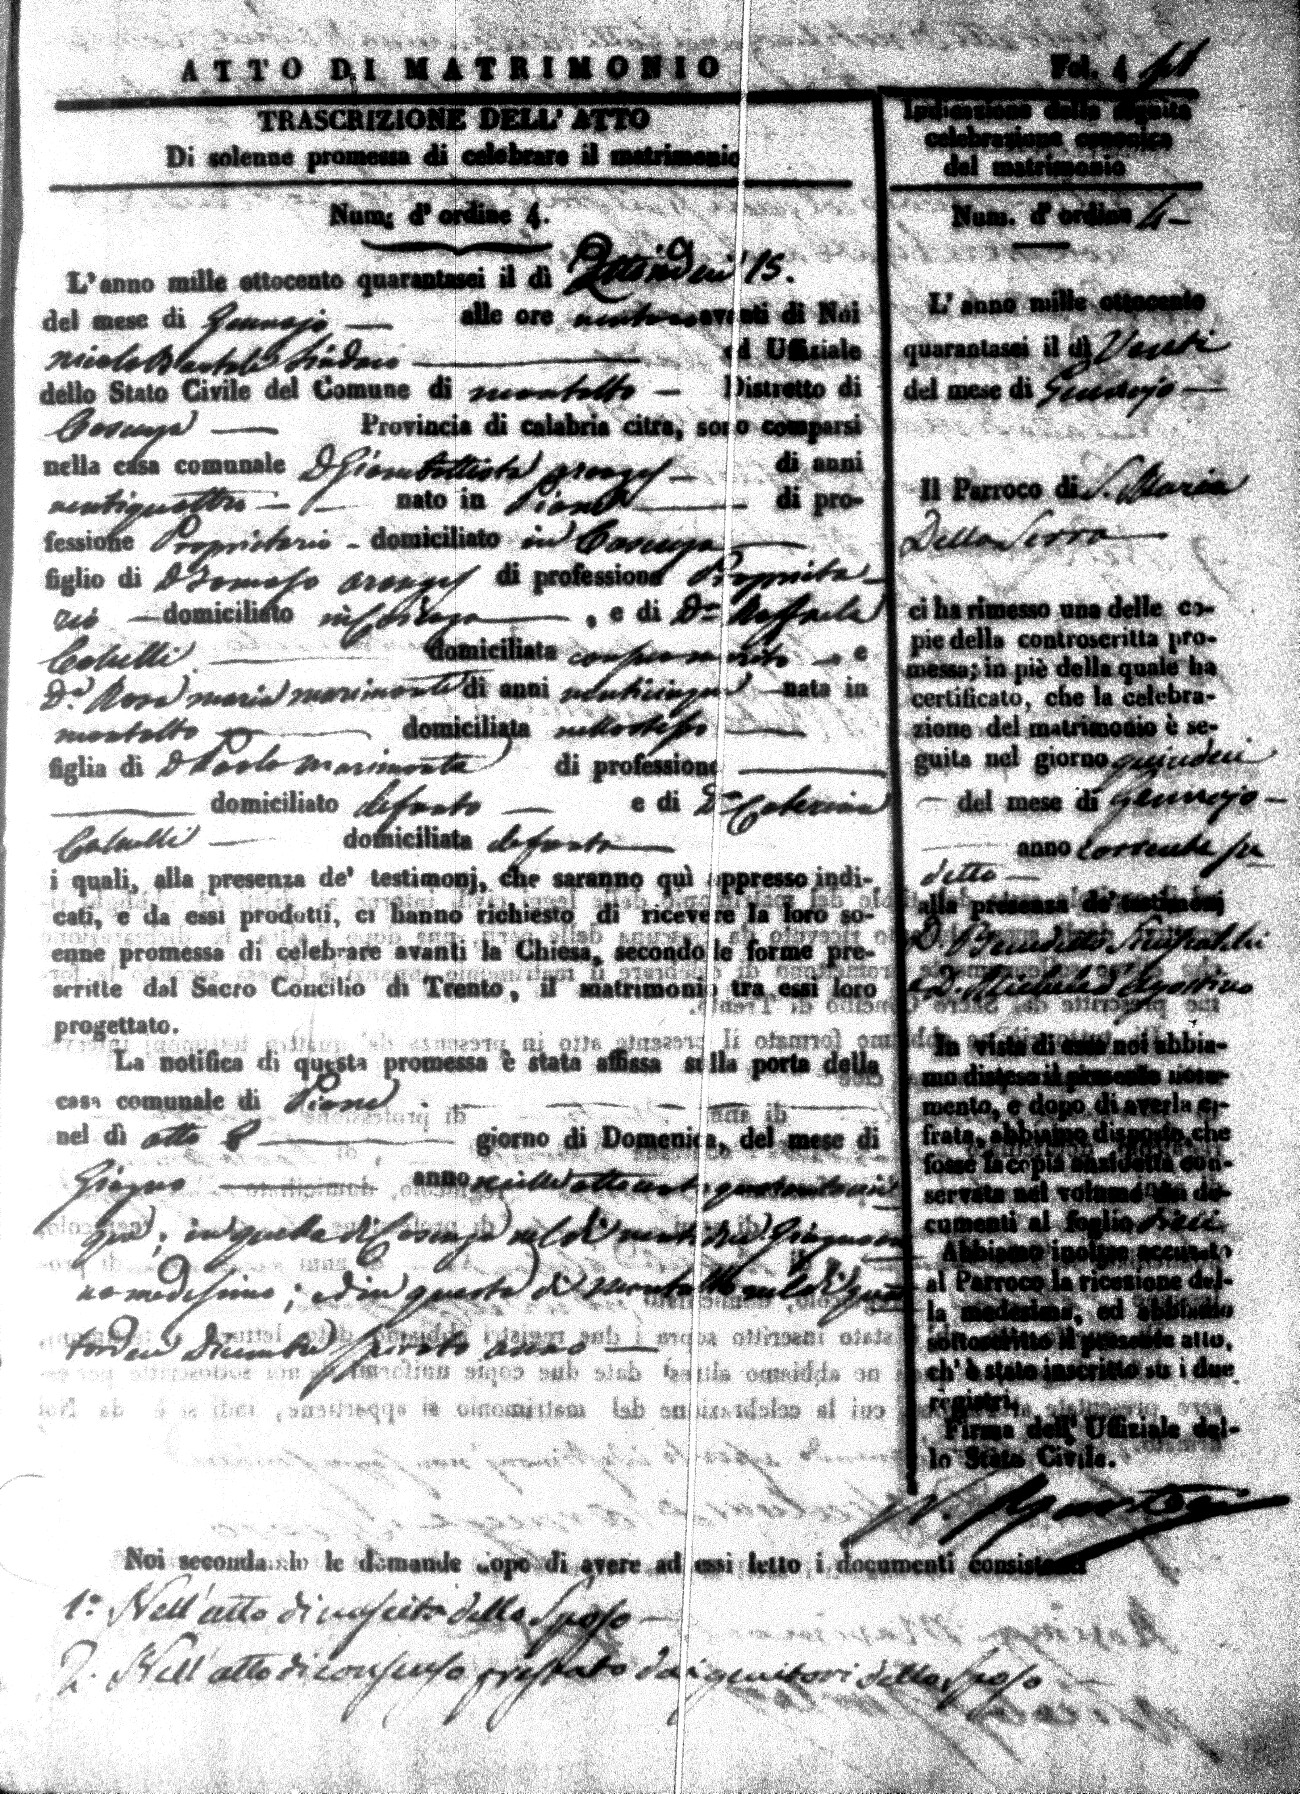 ATTO DI MATRIMONIO
Fol. 4
TRASCRIZIONE DELL' ATTO
Di solenne promessa di celebrare il matrimonio
Num; d' ordine 4.
L'anno mille ottocento quarantasei il dì Quindeci 15.
del mese di Gennajo — alle ore avanti di Noi
Nicola Sindaco — ed Uffiziale
dello Stato Civile del Comune di Montalto — Distretto di
Cosenza — Provincia di calabria citra, sono comparsi
nella casa comunale D Giambattista — di anni
ventiquattro — nato in Piane — di pro-
fessione Proprietario — domiciliato in Cosenza
figlio di D Tomaso di professione Proprieta-
rio — domiciliato in Cosenza — , e di D.a Raffaela
domiciliata — e
D.a Rosa Maria di anni venticinque — nata in
Montalto — domiciliata nello stesso —
figlia di D Paolo di professione —
— domiciliato defonto — e di D.a Caterina
— domiciliata defonta —
i quali, alla presenza de' testimonj, che saranno quì appresso indi-
cati, e da essi prodotti, ci hanno richiesto di ricevere la loro so-
enne promessa di celebrare avanti la Chiesa, secondo le forme pre-
scritte dal Sacro Concilio di Trento, il matrimonio tra essi loro
progettato.
La notifica di questa promessa è stata affissa sulla porta della
casa comunale di Piane
nel dì otto 8 — giorno di Domenica, del mese di
Giugno — anno mille ottocento quarantacin
que; in quella di Cosenza nel dì Giugno an
no medesimo; ed in questa di Montalto nel dì quat
tordeci Dicembre spirato anno —
Noi secondando le domande dopo di avere ad essi letto i documenti consistenti
1.° Nell'atto di nascita dello Sposo —
2. Nell'atto di consenso prestato dai genitori dello Sposo —
Indicazione della seguita
celebrazione canonica
del matrimonio
Num. d' ordine 4 —
L' anno mille ottocento
quarantasei il dì Venti
del mese di Gennajo —
Il Parroco di S. Maria
Della Serra —
ci ha rimesso una delle co-
pie della controscritta pro-
messa; in piè della quale ha
certificato, che la celebra-
zione del matrimonio è se-
guita nel giorno quindeci
— del mese di Gennajo —
— anno corrente su
detto —
alla presenza de' testimonj
D. Benedetto
e D. Michele Agostino
In vista di essa noi abbia-
mo disteso il presente notar-
mento, e dopo di averla ci-
frata, abbiamo disposto, che
fosse la copia anzidetta con-
servata nel volume da do-
cumenti al foglio dieci
Abbiamo inoltre accusato
al Parroco la ricezione del-
la medesima, ed abbiamo
sottoscritto il presente atto,
ch' è stato inscritto su i due
registri.
Firma dell' Uffiziale del-
lo Stato Civile.